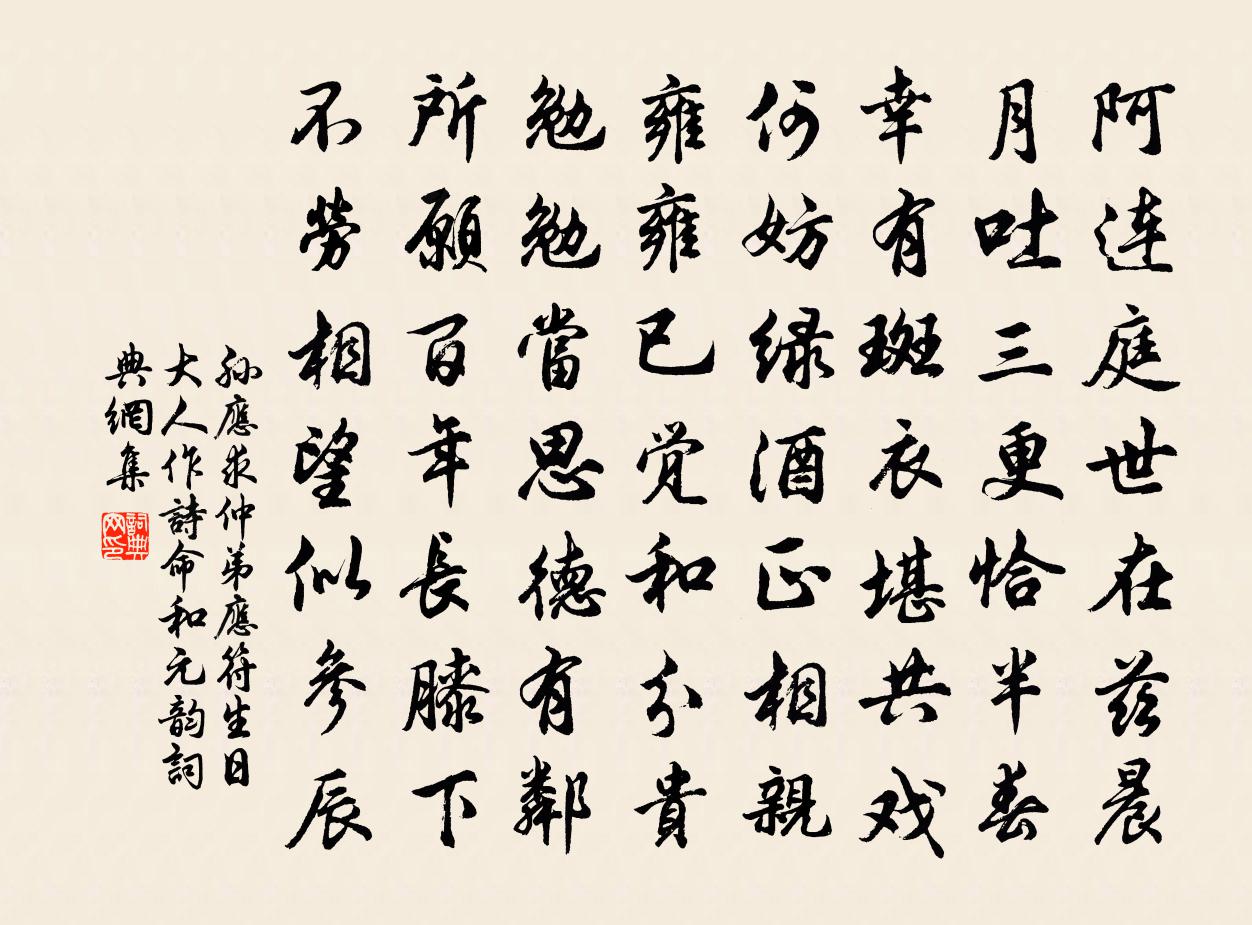 阿连庭世在兹晨
月吐三更恰半春
幸有斑衣堪共戏
何妨绿酒正相親
雍雍已觉和分貴
勉勉當思德有鄰
所願百年長膝下
不勞相望似參辰
孙應求仲弟應符生日
大人作詩命和元韵詞
典網集
詞典网印